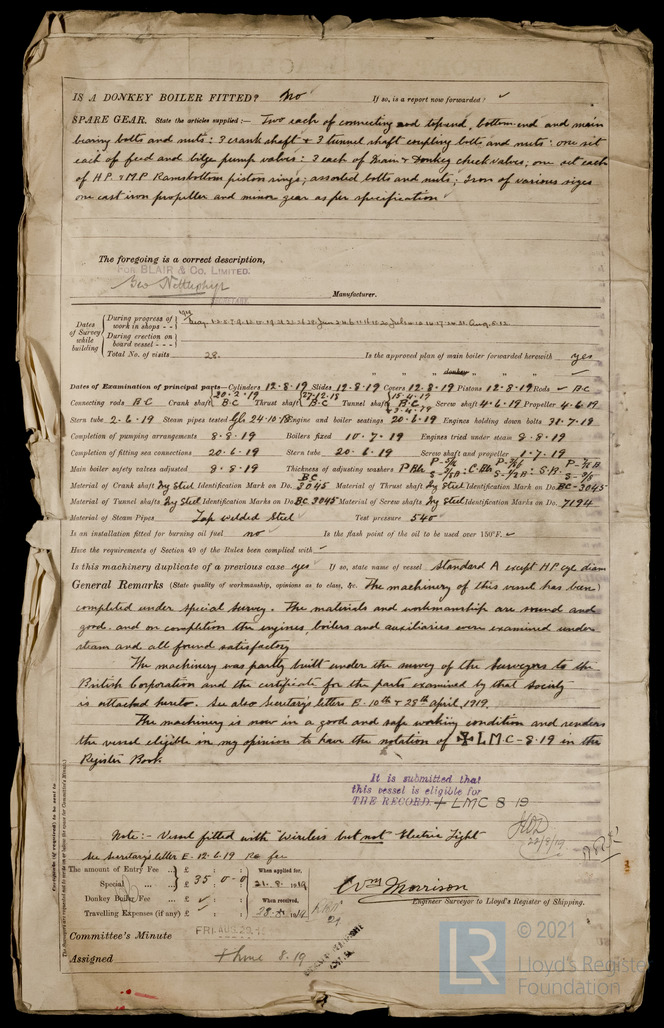 IS A DONKEY BOILER FITTED? No If so, is a report now forwarded? ✓
SPARE GEAR. State the articles supplied:— Two each of connecting rod top end, bottom end and main
bearing bolts and nuts: 3 crank shaft & 3 tunnel shaft coupling bolts and nuts: one set
each of feed and bilge pump valves: 3 each of Main & Donkey check valves, one set each
of H.P. & M.P Ramsbottom piston rings; assorted bolts and nuts; Iron of various sizes
one cast iron propeller and minor gear as per specification
The foregoing is a correct description,
FOR BLAIR & CO. LIMITED.
Geo
SECRETARY.
Manufacturer.
Dates of Survey while building
During progress of work in shops - -
During erection on board vessel - - -
Total No. of visits 28. Is the approved plan of main boiler forwarded herewith yes
" " " donkey " " "
Dates of Examination of principal parts—Cylinders 12.8.19 Slides 12.8.19 Covers 12.8.19 Pistons 12.8.19 Rods ✓ BC
Connecting rods B.C Crank shaft 20.2.19 B.C Thrust shaft 27.12.18 B.C Tunnel shafts B.C Screw shaft 4.6.19 Propeller 4.6.19
Stern tube 2.6.19 Steam pipes tested 24.10.18 Engine and boiler seatings 20.6.19 Engines holding down bolts 31.7.19
Completion of pumping arrangements 8.8.19 Boilers fixed 10.7.19 Engines tried under steam 8.8.19
Completion of fitting sea connections 20.6.19 Stern tube 20.6.19 Screw shaft and propeller 1.7.19
Main boiler safety valves adjusted 8.8.19 Thickness of adjusting washers
Material of Crank shaft Ing Steel Identification Mark on Do. BC 3045 Material of Thrust shaft Ing Steel Identification Mark on Do. BC-3045
Material of Tunnel shafts Ing Steel Identification Marks on Do. BC 3045 Material of Screw shafts Ing Steel Identification Marks on Do. 7194
Material of Steam Pipes Lap welded Steel Test pressure 540
Is an installation fitted for burning oil fuel no Is the flash point of the oil to be used over 150°F. ✓
Have the requirements of Section 49 of the Rules been complied with ✓
Is this machinery duplicate of a previous case yes If so, state name of vessel Standard A except H.P. cyl diam
General Remarks (State quality of workmanship, opinions as to class, &c. The machinery of this vessel has been
completed under special survey. The materials and workmanship are sound and
good. and on completion the engines, boilers and auxiliaries were examined under
steam and all found satisfactory
The machinery was partly built under the survey of the Surveyors to the
British Corporation and the certificate for the parts examined by that society
is attached hereto. See also Secretary's letters E. 10th & 28th April, 1919.
The machinery is now in a good and safe working condition and renders
the vessel eligible in my opinion to have the notation of ✠ LMC-8.19 in the
Register Book.
It is submitted that
this vessel is eligible for
THE RECORD. + LMC 8 19
22/8/19
Note:- Vessel fitted with "Wireless but not Electric Light
See Secretary's letter E. 12.6.19 Re fee
The amount of Entry Fee ... £ When applied for,
Special ... ... £ 35 0-0 21.8.1919
Donkey Boiler Fee ... £ ✓ When received,
Travelling Expenses (if any) £
Wm Morrison
Engineer Surveyor to Lloyd's Register of Shipping.
Committee's Minute FRI. AUG 29 19
Assigned + LMC 8.19
© 2021
Lloyd's Register
Foundation
LR